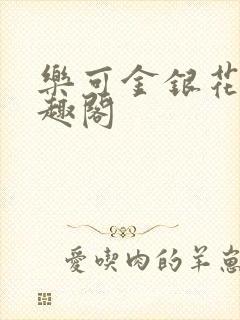 樂可金銀花
趣閣
愛喫肉的羊崽